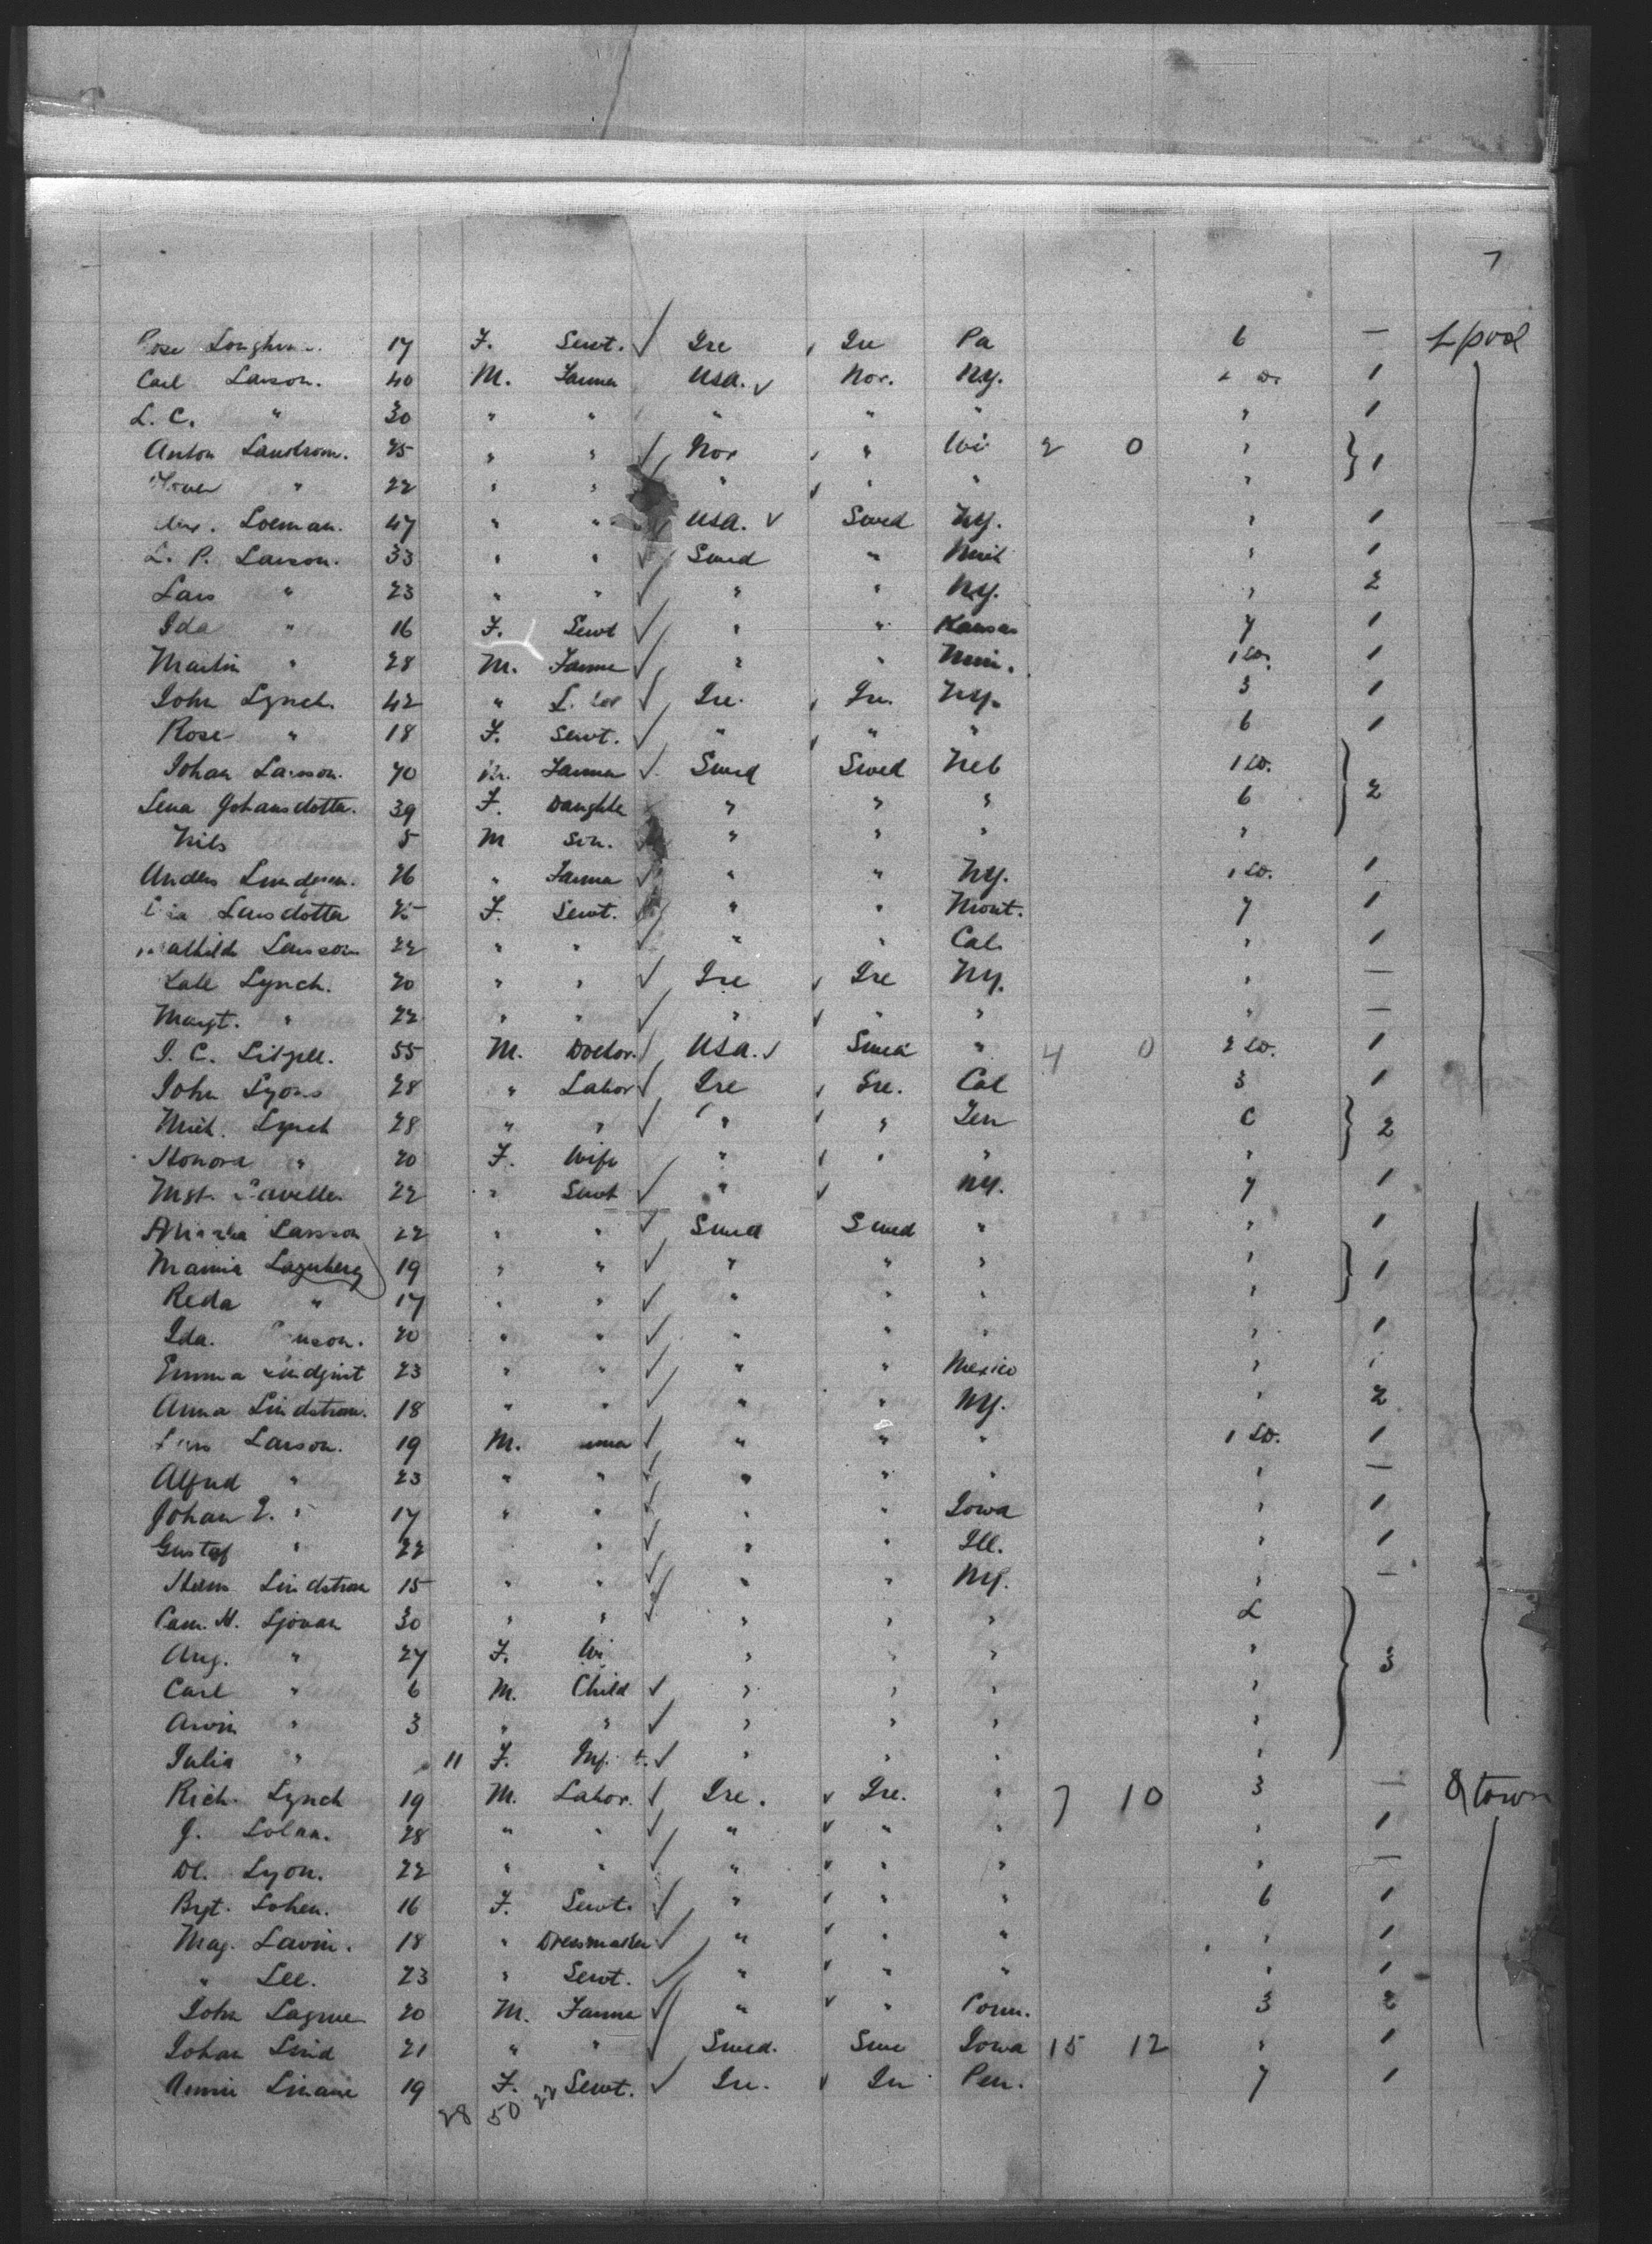 7
Rose 17 F. Servt. ✓ Ire Ire Pa 6 — Lpool
Carl Larson. 40 M. Farmer USA. ✓ Nor. NY. 1
L. C. " 30 " " " " " " 1
Anton Landstrom. 25 " " ✓ Nor " Wi 2 0 " } 1
" 22 " " " " " "
Loeman. 47 " " USA. ✓ Swed NY. " 1
L. P. Larson. 33 " " ✓ Swed " " 1
Lars " 23 " " ✓ " " NY. " 2
Ida " 16 F. Servt ✓ " " Kansas 7 1
Martin " 28 M. Farmer ✓ " " Min. 1 Lo. 1
John Lynch. 42 " ✓ Ire. Ire. NY. 3 1
Rose " 18 F. Servt. ✓ " " " 6 1
Johan Larsson. 70 M. Farmer ✓ Swed Swed Neb 1 Lo. } 2
Lena Johansdotter. 39 F. Daughter " " " 6
Nils 5 M Son. " " " "
Anders Lundgren. 26 " Farmer ✓ " " NY. 1 Lo. 1
Larsdotter 25 F. Servt. " " Mont. 7 1
Mathilda Larsson 22 " " ✓ " " Cal. " 1
Kate Lynch. 20 " " ✓ Ire ✓ Ire NY. " —
Margt. " 22 " " ✓ " ✓ " " " —
J. C. 55 M. Doctor. ✓ USA. ✓ Swed " 4 0 2 Lo. 1
John Lyons 28 " Labor ✓ Ire Ire. Cal 3 1
Mich. Lynch 28 " " ✓ " " Ten C } 2
Honora " 20 F. Wife " ✓ " " "
Mgt. 22 " Servt ✓ " ✓ NY. 7 1
Larsson 22 " " ✓ Swed Swed " " 1
Mamie Lagerberg 19 " " ✓ " " " " } 1
Reda " 17 " " ✓ " " " "
Ida. 20 " " ✓ " " " " 1
Emma Lindqvist 23 " " ✓ " " Mexico "
Anna Lindstrom. 18 " " ✓ " " NY. " 2
Lars Larson. 19 M. ✓ " " " 1 Lo. 1
Alfred " 23 " " ✓ " " " " —
Johan E. " 17 " " ✓ " " Iowa " 1
Gustaf " 22 " ✓ " " Ill. " 1
Lindstrom 15 " " ✓ " " NY. " —
30 " " ✓ " " " L } 3
Aug. " 27 F. Wi " " " "
Carl " 6 M. Child ✓ " " " "
Arvin " 3 " " ✓ " " " "
Julia " 11 F. Inf. ✓ " " " "
Rich. Lynch 19 M. Labor. ✓ Ire. ✓ Ire. " 7 10 3 — Qtown
J. 28 " " ✓ " ✓ " " " 1
Dl. Lyon. 22 " " ✓ " ✓ " " " —
Bgt. 16 F. Servt. ✓ " " " 6 1
Mag. Lavin. 18 " Dressmaker ✓ " ✓ " " " 1
" Lee. 23 " Servt. ✓ " " " " 1
John 20 M. Farmer ✓ " ✓ " Conn. 3 2
Johan Lind 21 " " ✓ Swed. Swe Iowa 15 12 " 1
Annie Linane 19 F. Servt. ✓ Ire. ✓ Ire Pen. 7 1
28 50 22